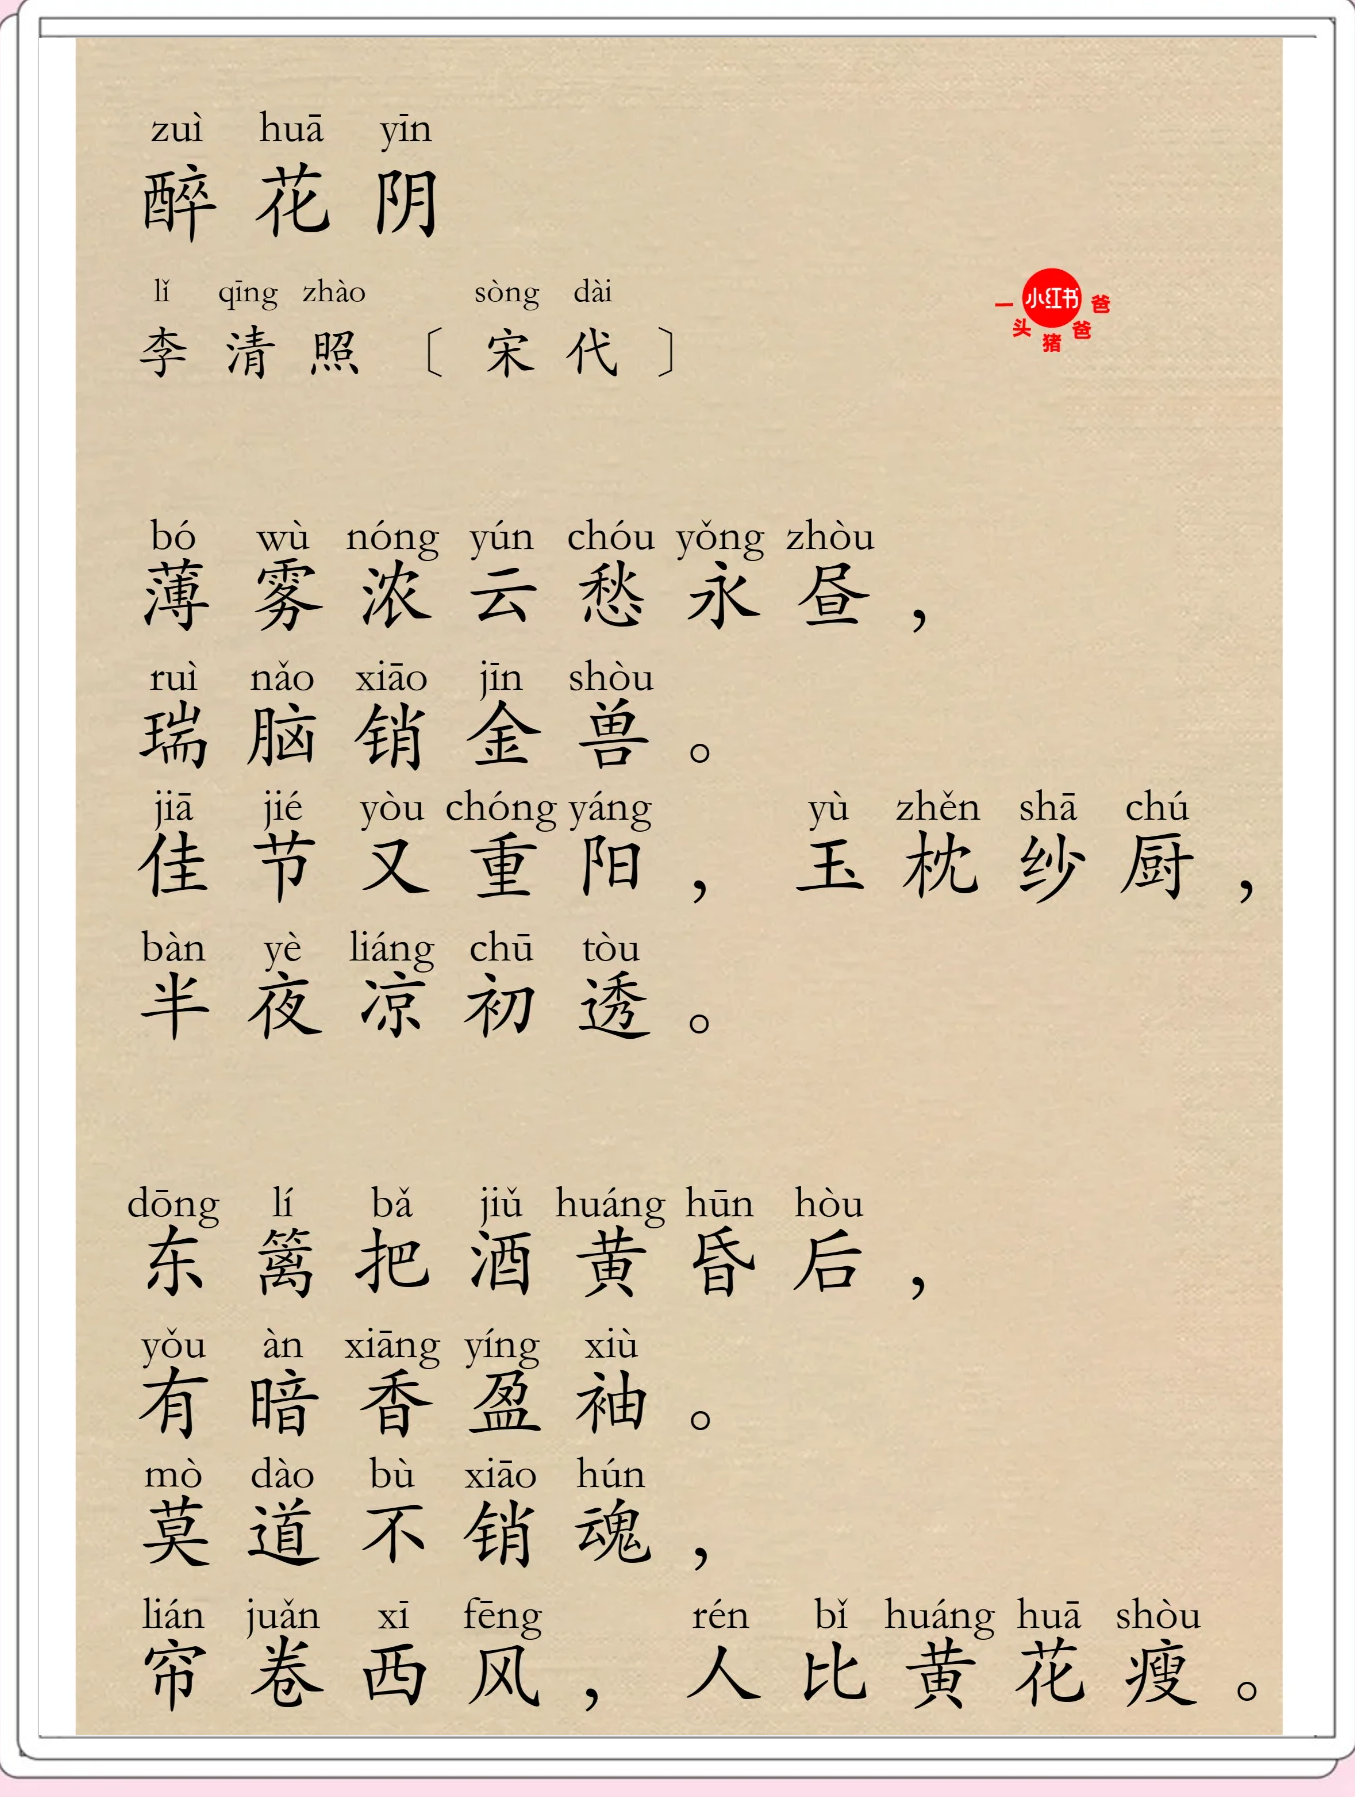 zuì huā yīn
醉花阴
lǐ qīng zhào sòng dài
李清照〔宋代〕
小红书
一头猪爸爸
bó wù nóng yún chóu yǒng zhòu
薄雾浓云愁永昼，
ruì nǎo xiāo jīn shòu
瑞脑销金兽。
jiā jié yòu chóng yáng yù zhěn shā chú
佳节又重阳，玉枕纱厨，
bàn yè liáng chū tòu
半夜凉初透。
dōng lí bǎ jiǔ huáng hūn hòu
东篱把酒黄昏后，
yǒu àn xiāng yíng xiù
有暗香盈袖。
mò dào bù xiāo hún
莫道不销魂，
lián juǎn xī fēng rén bǐ huáng huā shòu
帘卷西风，人比黄花瘦。